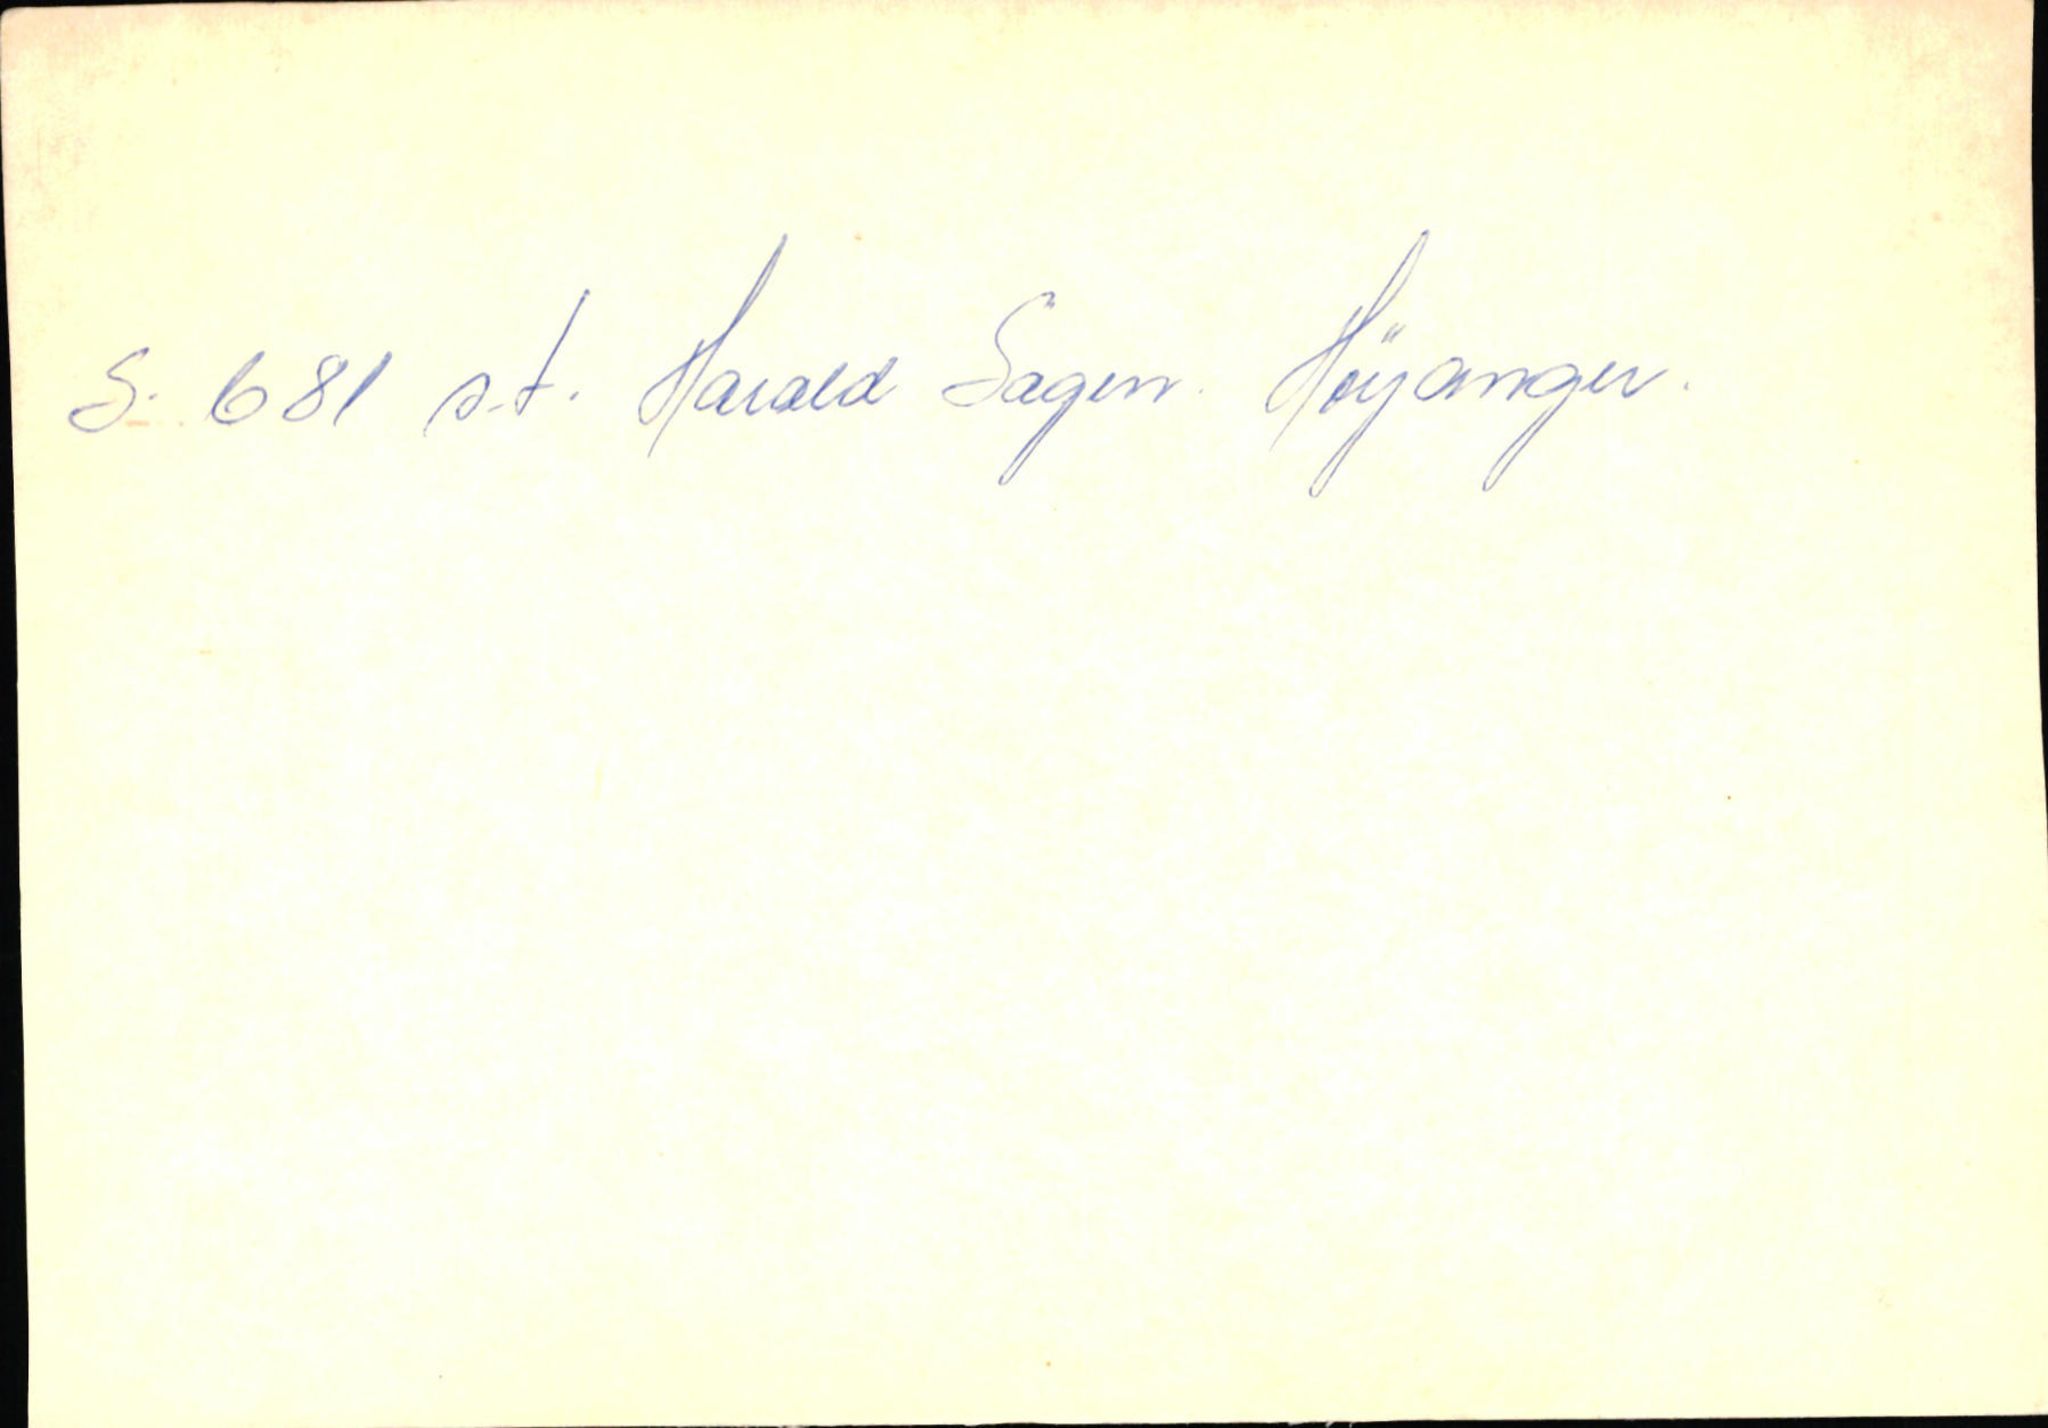 S. 681 s.t. Harald Sagen. Höyanger.